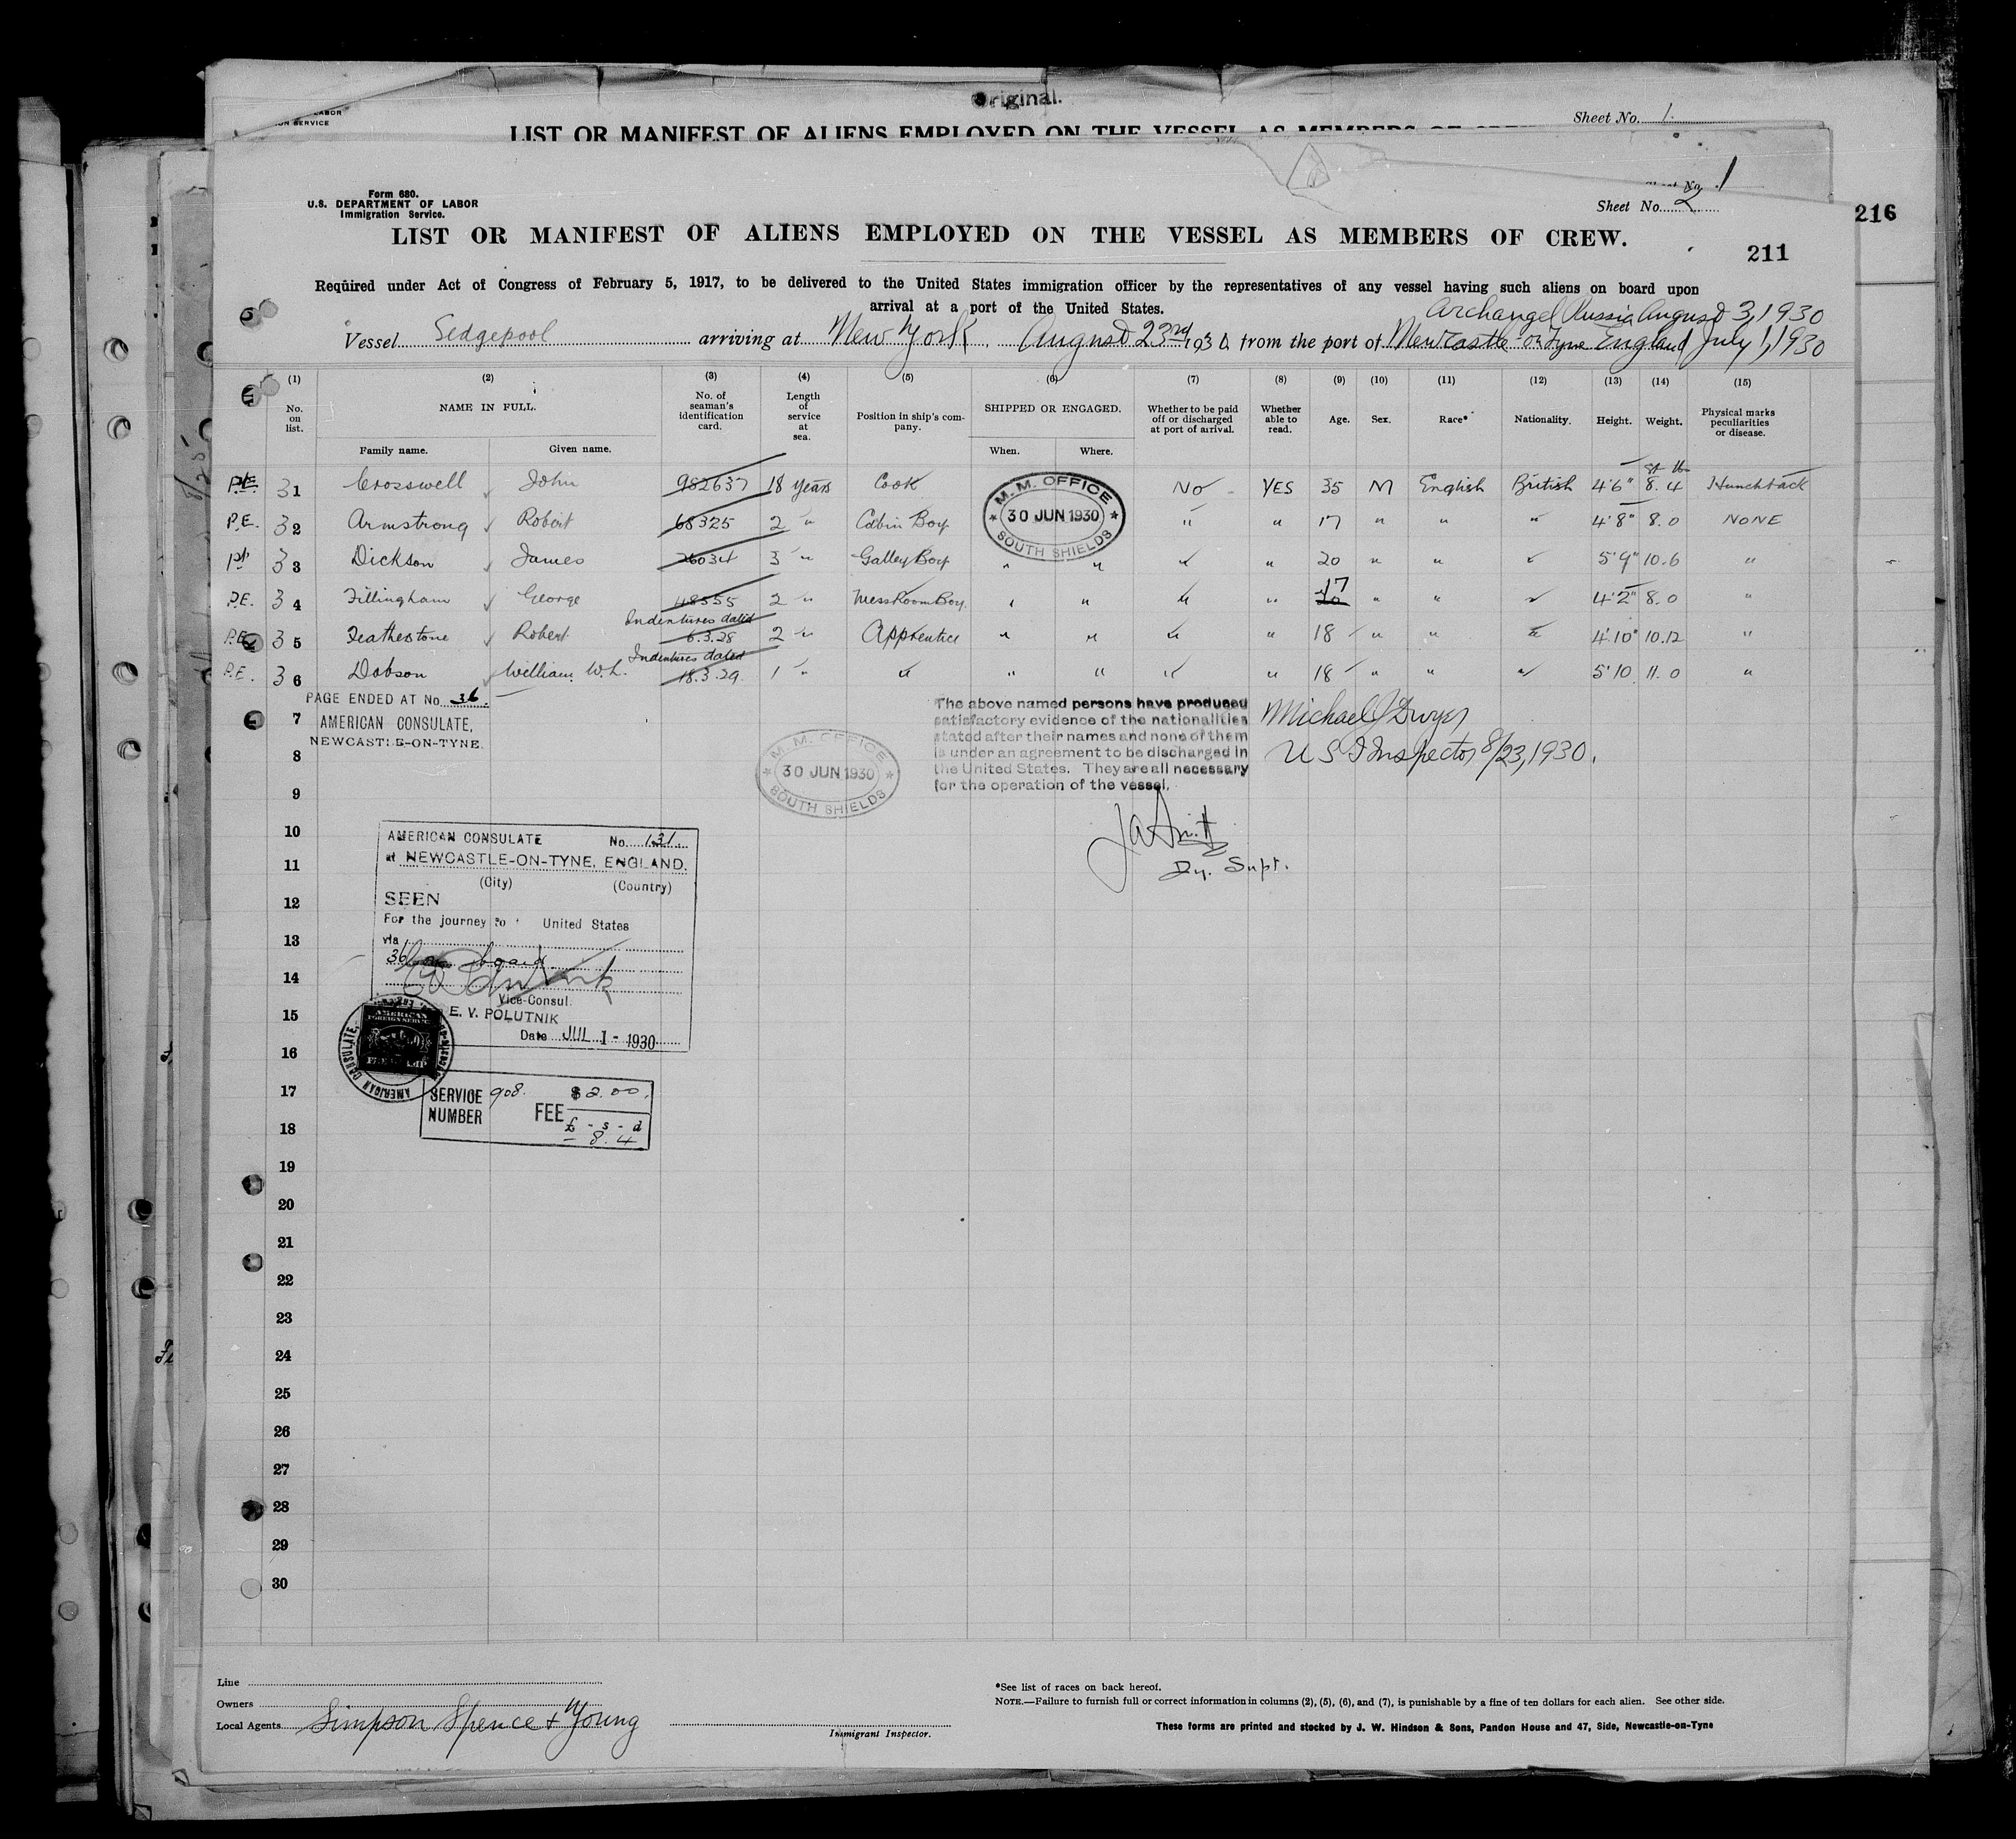 Original.
LABOR
SERVICE
Sheet No. 1
LIST OR MANIFEST OF ALIENS EMPLOYED ON THE VESSEL AS MEMBERS OF
Sheet No. 1
216
Form 680.
U.S. DEPARTMENT OF LABOR
Immigration Service.
Sheet No. 2
LIST OR MANIFEST OF ALIENS EMPLOYED ON THE VESSEL AS MEMBERS OF CREW.
211
Required under Act of Congress of February 5, 1917, to be delivered to the United States immigration officer by the representatives of any vessel having such aliens on board upon
arrival at a port of the United States.
Archangel Russia August 3, 1930
Vessel Sedgepool arriving at New York August 23rd 1930, from the port of Newcastle-on-Tyne England July 1, 1930
(1) (2) (3) (4) (5) (6) (7) (8) (9) (10) (11) (12) (13) (14) (15)
No. on list. NAME IN FULL. No. of seaman's identification card. Length of service at sea. Position in ship's company. SHIPPED OR ENGAGED. Whether to be paid off or discharged at port of arrival. Whether able to read. Age. Sex. Race* Nationality. Height. Weight. Physical marks peculiarities or disease.
Family name. Given name. When. Where.
P.E. 31 Crosswell John 982637 18 years Cook No YES 35 M English British 4'6" 8.4 Hunchback
P.E. 32 Armstrong Robert 68325 2 " Cabin Boy " " 17 " " " 4'8" 8.0 NONE
33 Dickson James 26034 3 " Galley Boy " " " " 20 " " " 5'9" 10.6 "
P.E. 34 Fillingham George 48555 2 " Mess Room Boy " " " " 20 17 " " " 4'2" 8.0 "
P.E. 35 Featherstone Robert Indentures dated 6.3.28 2 " Apprentice " " " " 18 " " " 4'10" 10.12 "
P.E. 36 Dobson William W.L. Indentures dated 18.3.29 1 " " " " " " 18 " " " 5'10 11.0 "
M. M. OFFICE
30 JUN 1930
SOUTH SHIELDS
PAGE ENDED AT No. 36.
AMERICAN CONSULATE,
NEWCASTLE-ON-TYNE.
M. M. OFFICE
30 JUN 1930
SOUTH SHIELDS
The above named persons have produced
satisfactory evidence of the nationalities
stated after their names and none of them
is under an agreement to be discharged in
the United States. They are all necessary
for the operation of the vessel.
Michael J Dwyer
U S I Inspector 8/23, 1930.
Dy. Supt.
7
8
9
10
11
12
13
14
15
16
17
18
19
20
21
22
23
24
25
26
27
28
29
30
AMERICAN CONSULATE No. 131.
at NEWCASTLE-ON-TYNE, ENGLAND.
(City) (Country)
SEEN
For the journey to United States
via
36 on board
Vice-Consul.
E. V. POLUTNIK
Date JUL 1 - 1930
AMERICAN CONSULATE
AMERICAN
FOREIGN SERVICE
SERVICE NUMBER 908. FEE $2.00.
£ - s - d
- 8. 4
Line
Owners
Local Agents Simpson Spence & Young
Immigrant Inspector.
*See list of races on back hereof.
NOTE.—Failure to furnish full or correct information in columns (2), (5), (6), and (7), is punishable by a fine of ten dollars for each alien. See other side.
These forms are printed and stocked by J. W. Hindson & Sons, Pandon House and 47, Side, Newcastle-on-Tyne